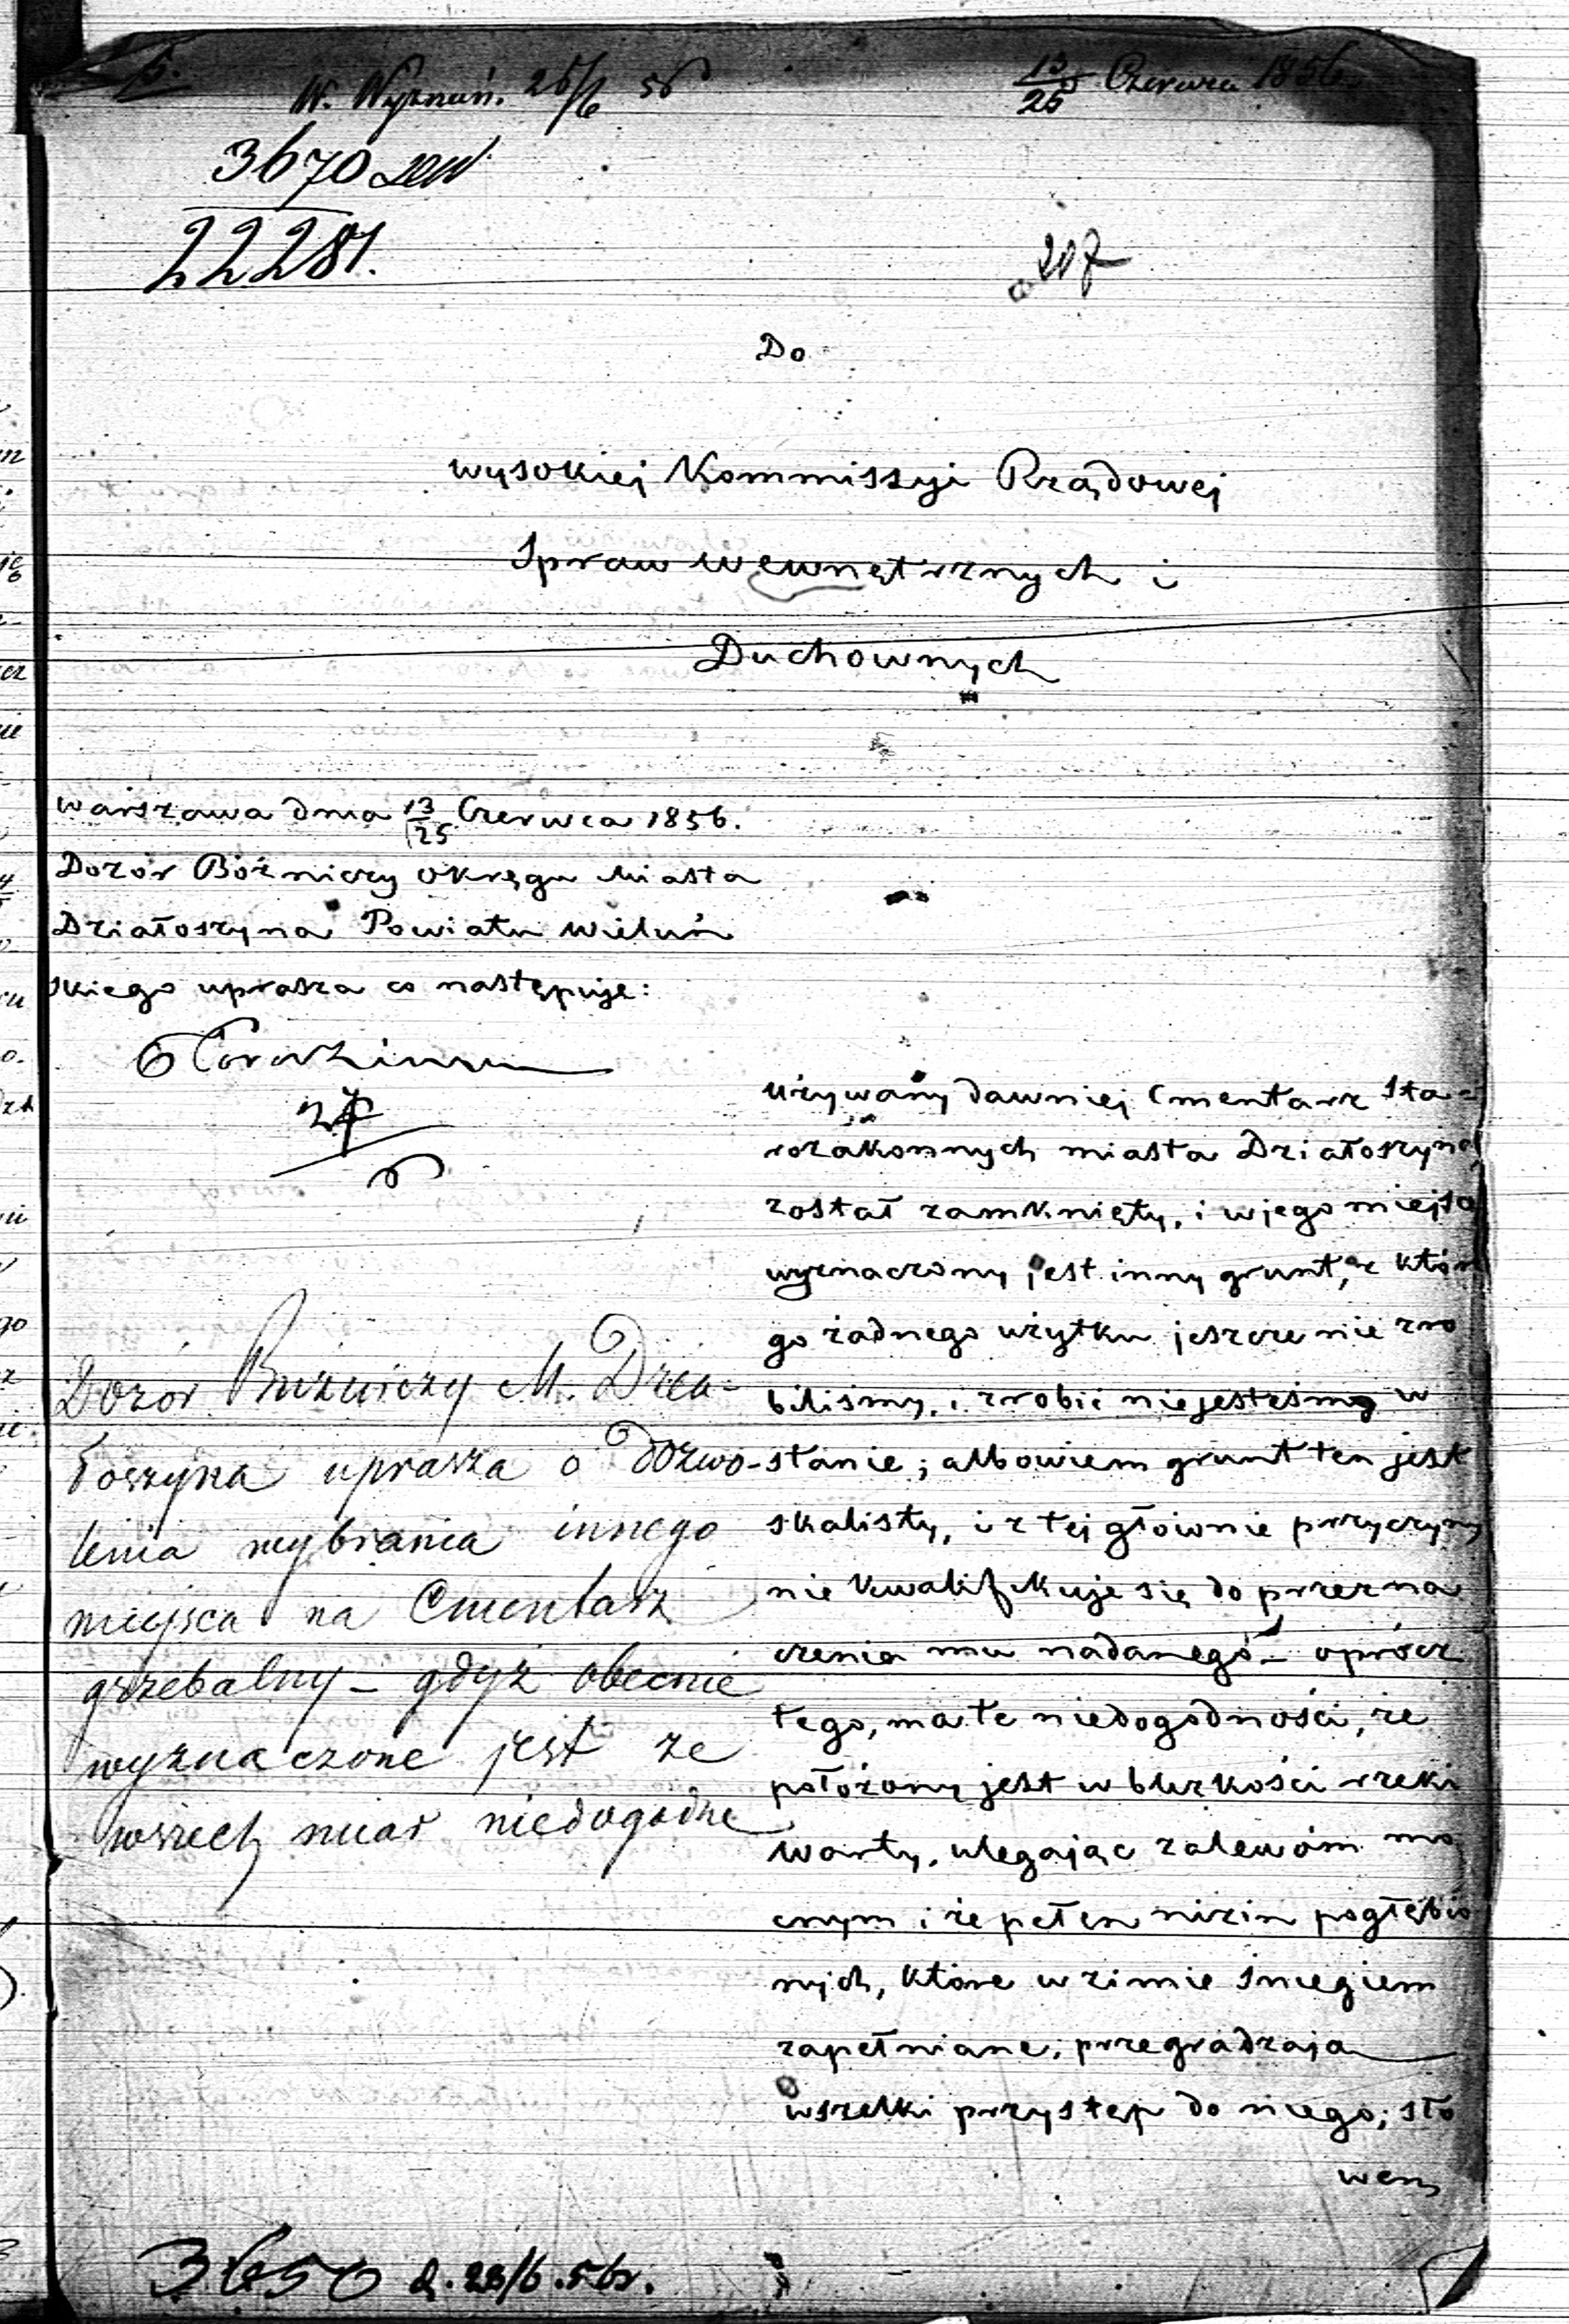 5.
W. Wyznań. 25/6 56
13/25 Czerwca 1856.
3670
22281.
207
Do
wysokiej Kommissyi Rządowej
Spraw Wewnętrznych i
Duchownych
Warszawa dnia 13/25 Czerwca 1856.
Dozór Bóżniczy Okręgu Miasta
Działoszyna Powiatu Wieluń
skiego uprasza co następuje:
27/6
Dozór Bużniczy M. Dzia-
łoszyna uprasza o dozwo-
lenia wybrania innego
miejsca na Cmentarz
grzebalny – gdyż obecnie
wyznaczone jest ze
wszech miar niedogodne
używany dawniej Cmentarz Sta-
rozakonnych miasta Działoszyna
został zamknięty, i w jego miejsc
wyznaczony jest inny grunt, z któr
go żadnego użytku jeszcze nie zro
biliśmy, i zrobić nie jesteśmy w
stanie; albowiem grunt ten jest
skalisty, i z tej głównie przyczyny
nie kwalifikuje się do przezna
czenia mu nadanego – oprócz
tego, ma te niedogodności, że
położony jest w bliskości rzeki
Warty, ulegając zalewóm mo
cnym i że pełen nizin pogłębio
nych, które w zimie śniegiem
zapełniane, przegradzają
wszelki przystęp do niego; sło
wem
3650 d. 28/6. 56r.